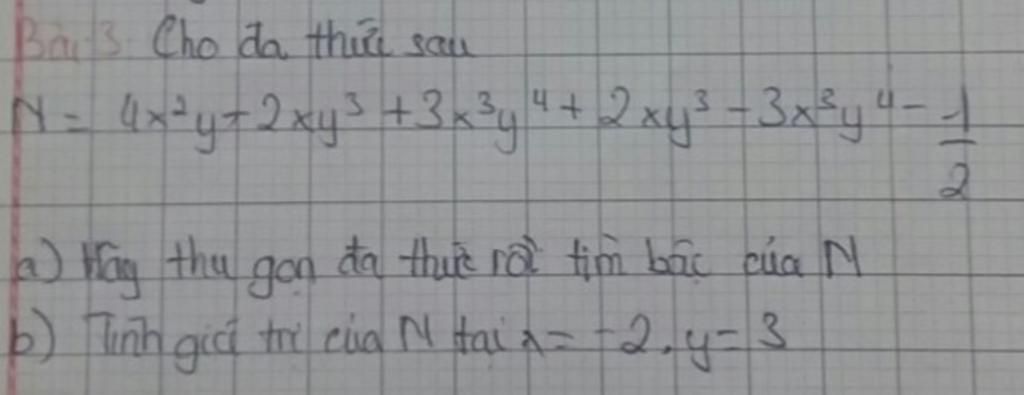 Bài 3 Cho đa thức sau
N = 4x²y - 2xy³ + 3x³y⁴ + 2xy³ - 3x³y⁴ - 1/2
a) Hãy thu gọn đa thức rồi tìm bậc của N
b) Tính giá trị của N tại x = -2, y = 3